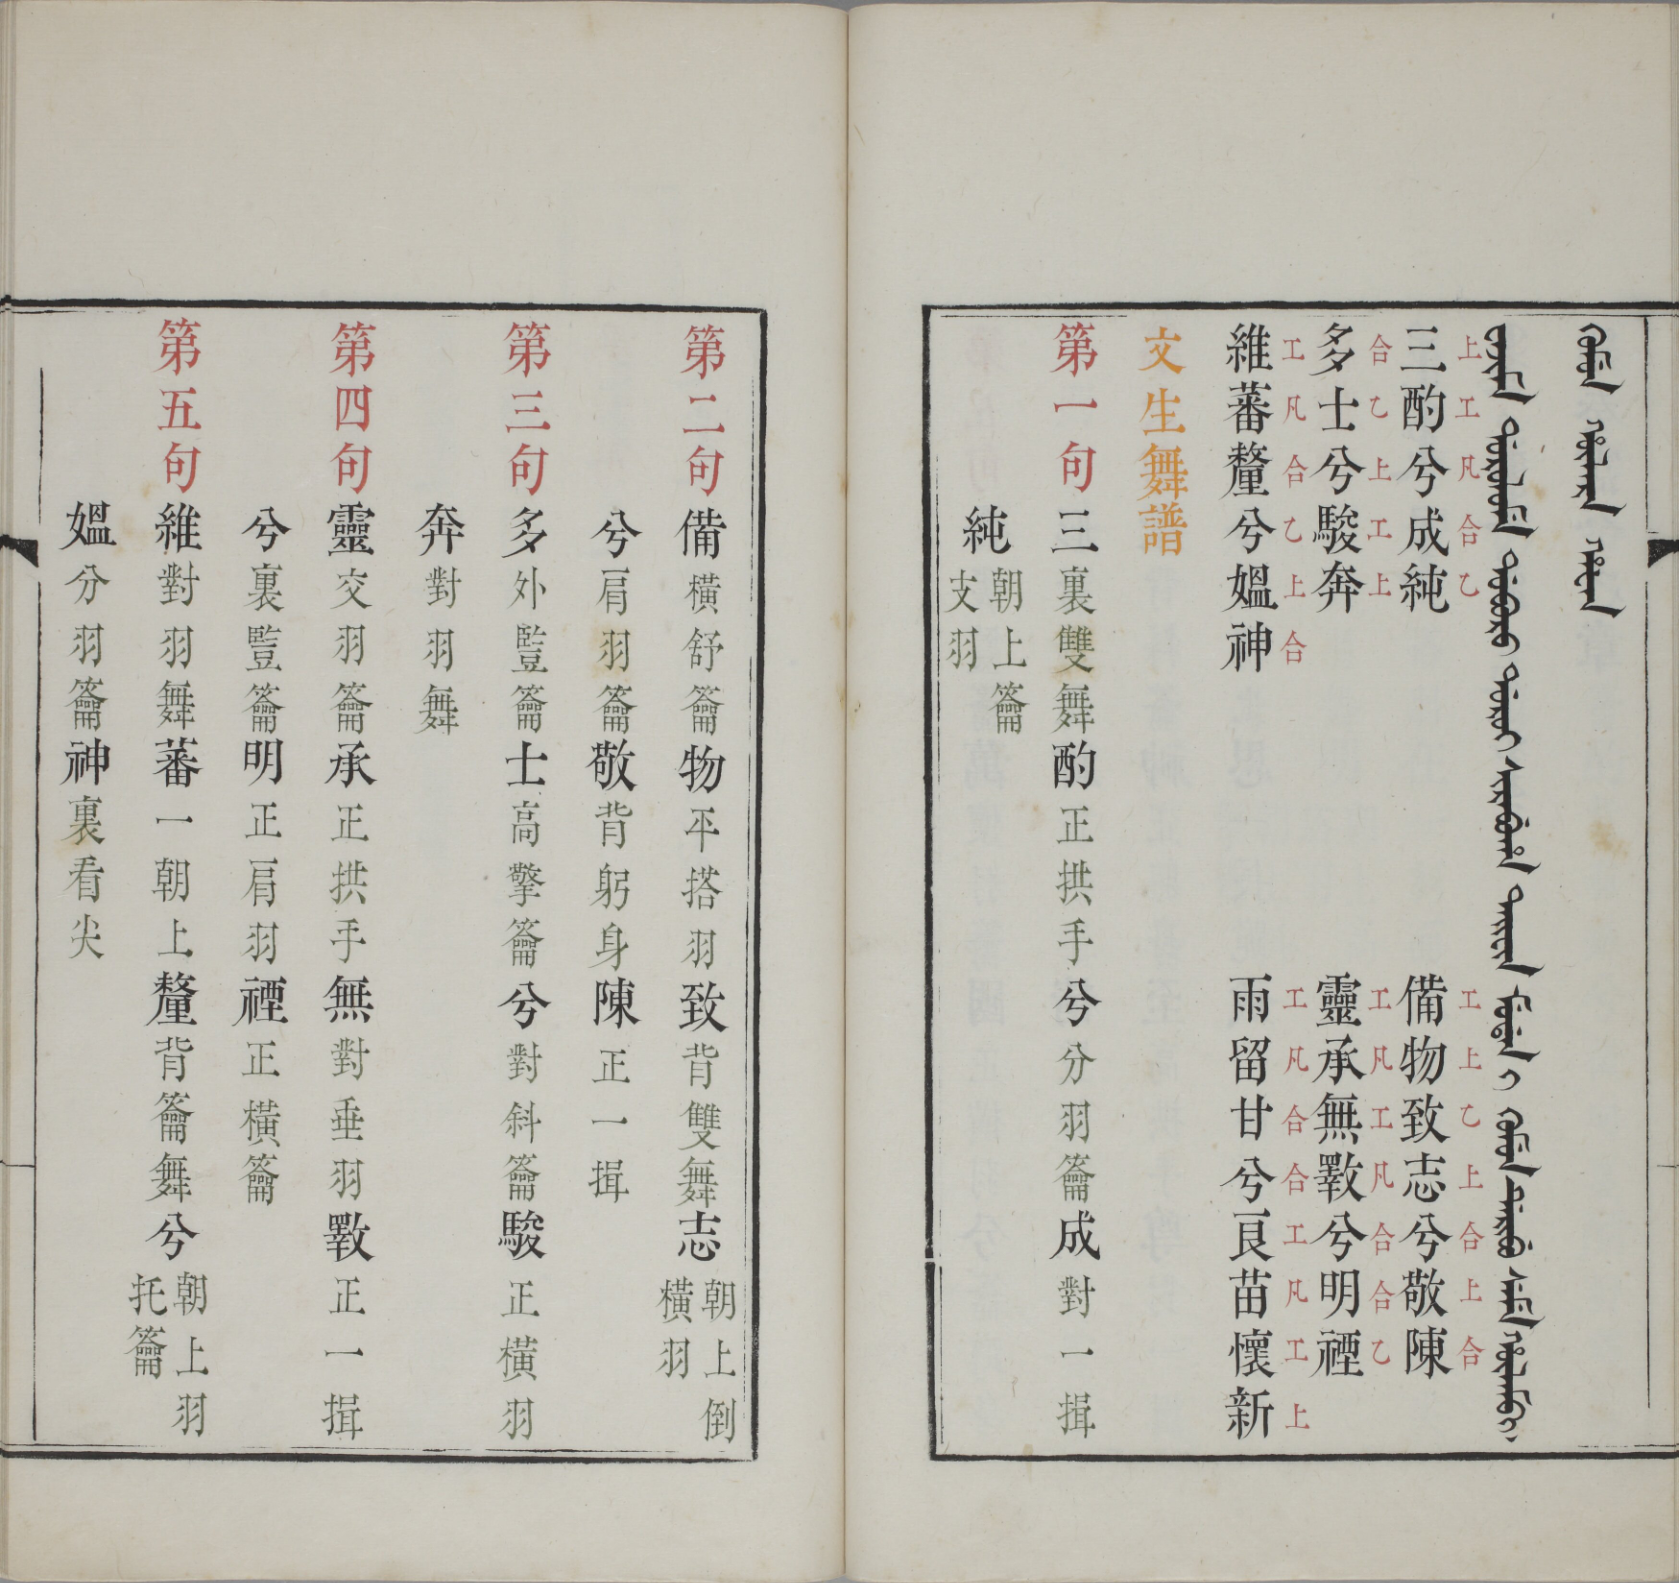 上工凡合乙　工上乙上合上合
三酌兮成純　備物致志兮敬陳
合乙上工上　工凡工凡合合乙
多士兮駿奔　靈承無斁兮明禋
工凡合乙上合　工凡合合工凡工上
維蕃釐兮媼神　雨留甘兮良苗懷新
文生舞譜
第一句三裏雙舞酌正拱手兮分羽籥成對一揖
純朝上籥支羽
第二句備橫舒籥物平搭羽致背雙舞志朝上倒橫羽
兮肩羽籥敬背躬身陳正一揖
第三句多外豎籥士高擎籥兮對斜籥駿正橫羽
奔對羽舞
第四句靈交羽籥承正拱手無對垂羽斁正一揖
兮裏豎籥明正肩羽禋正橫籥
第五句維對羽舞蕃一朝上釐背籥舞兮朝上羽托籥
媼分羽籥神裏看尖